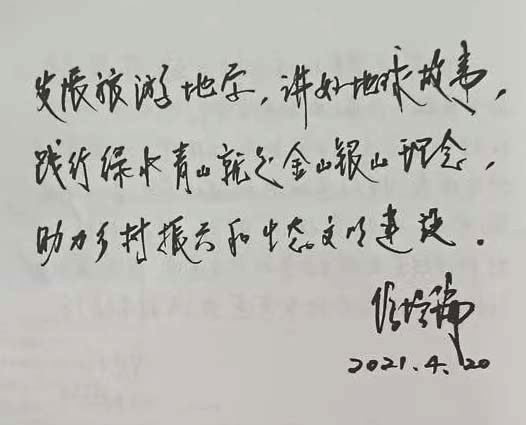 发展旅游地学，讲好地球故事，
践行绿水青山就是金山银山理念，
助力乡村振兴和生态文明建设。
2021.4.20